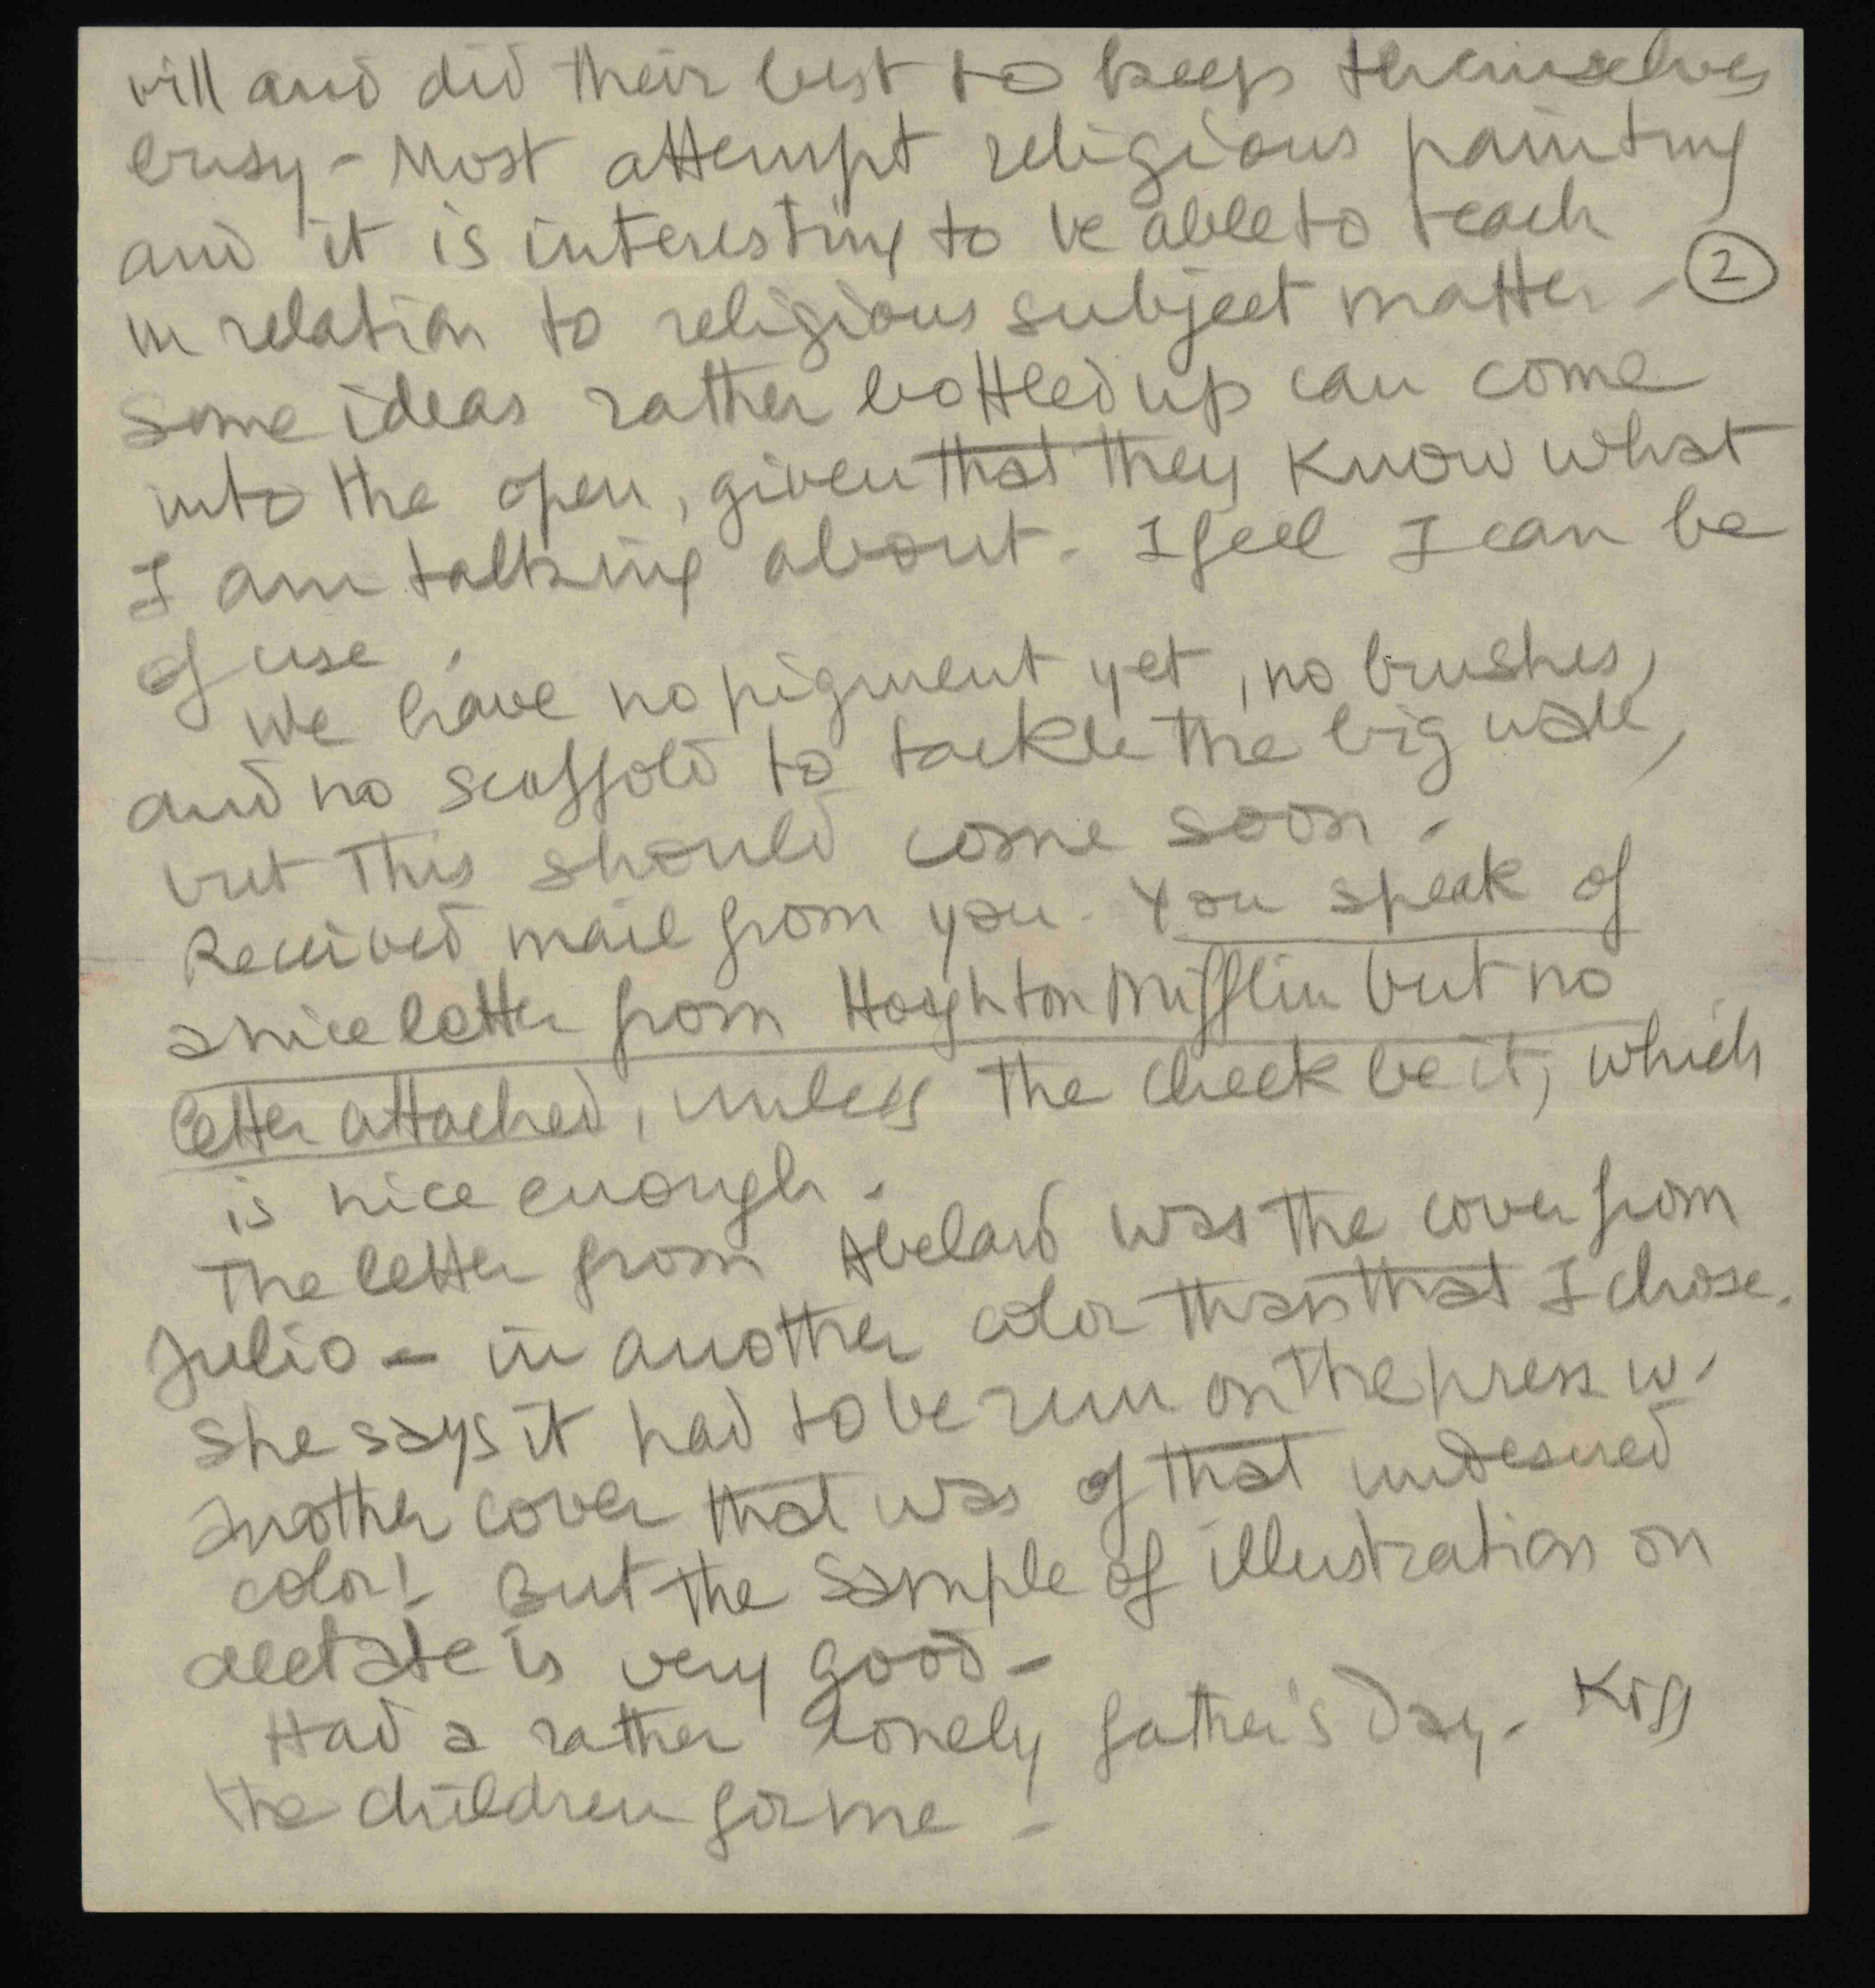 will and did their best to keep themselves
busy - Most attempt religious painting
and it is interesting to be able to teach
in relation to religious subject matter - 2
Some ideas rather bottled up can come
into the open, given that they know what
I am talking about - I feel I can be
of use.
We have no pigment yet, no brushes,
and no scaffold to tackle the big wall,
but this should come soon -
Received mail from you - You speak of
a nice letter from Hoghton Mifflin but no
letter attached, unless the check be it, which
is nice enough -
The letter from Abelard was the cover from
Julio - in another color than that I chose.
She says it had to be run on the press w.
another cover that was of that undesired
color! But the sample of illustration on
acetate is very good -
Had a rather lonely father's Day - Kiss
the children for me -